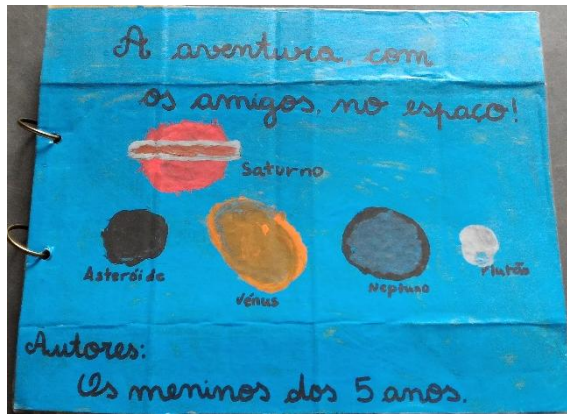 A aventura, com
os amigos, no espaço!
Saturno
Asteróide
Vénus
Neptuno
Plutão
Autores:
Os meninos dos 5 anos.